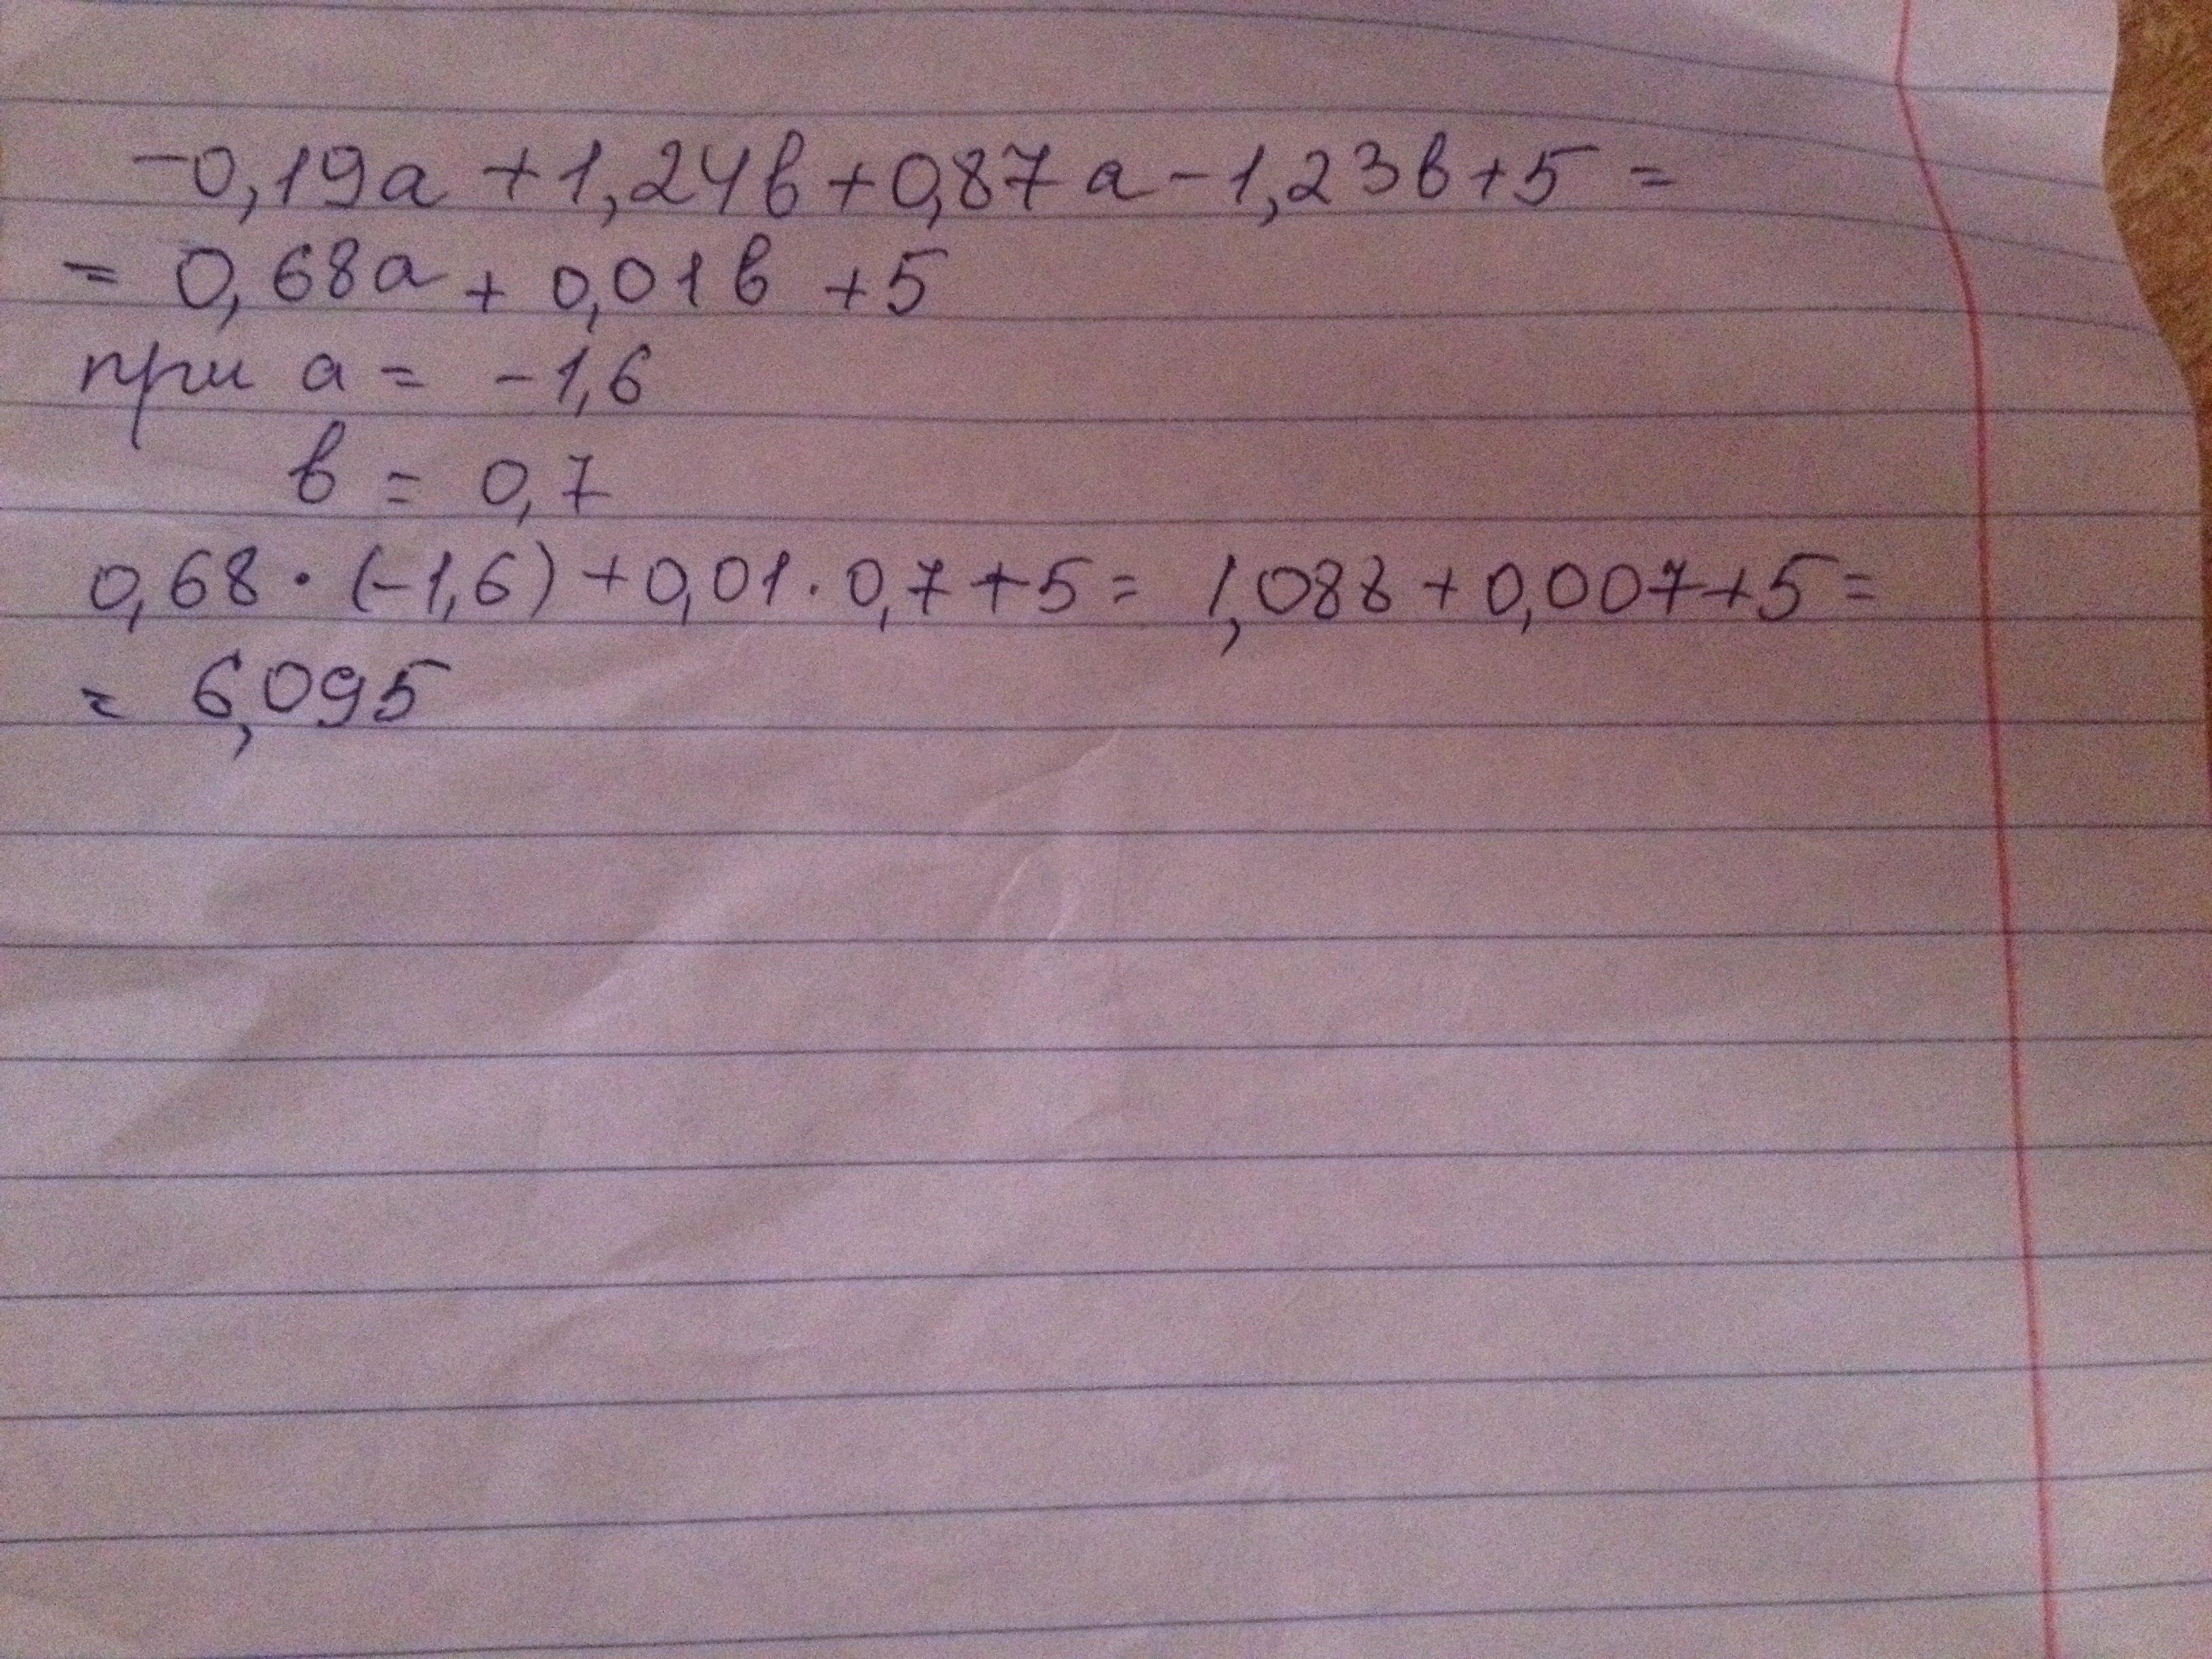 -0,19a + 1,24b + 0,87a - 1,23b + 5 =
= 0,68a + 0,01b + 5
при a = -1,6
b = 0,7
0,68 · (-1,6) + 0,01 · 0,7 + 5 = 1,088 + 0,007 + 5 =
= 6,095